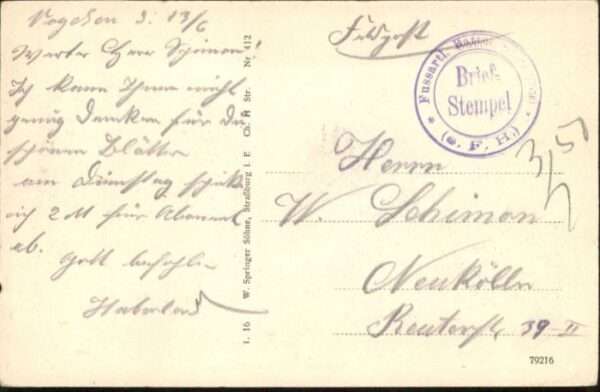 Vogesen 3. 13/6
Werter Herr Schimon!
Ich kann Ihnen nicht
genug danken für die
schönen Blätter
am Dienstag schick
ich 2 M für Abonent
ab.
Gott befohlen
Haberland
I. 16 W. Springer Söhne, Straßburg i. E. Ch. H Str. Nr. 412
Feldpost
Fussartl. Batter
Brief-
Stempel
(s. F. H.)
Herrn
W. Schimon
Neukölln
Reuterstr. 39 II
79216